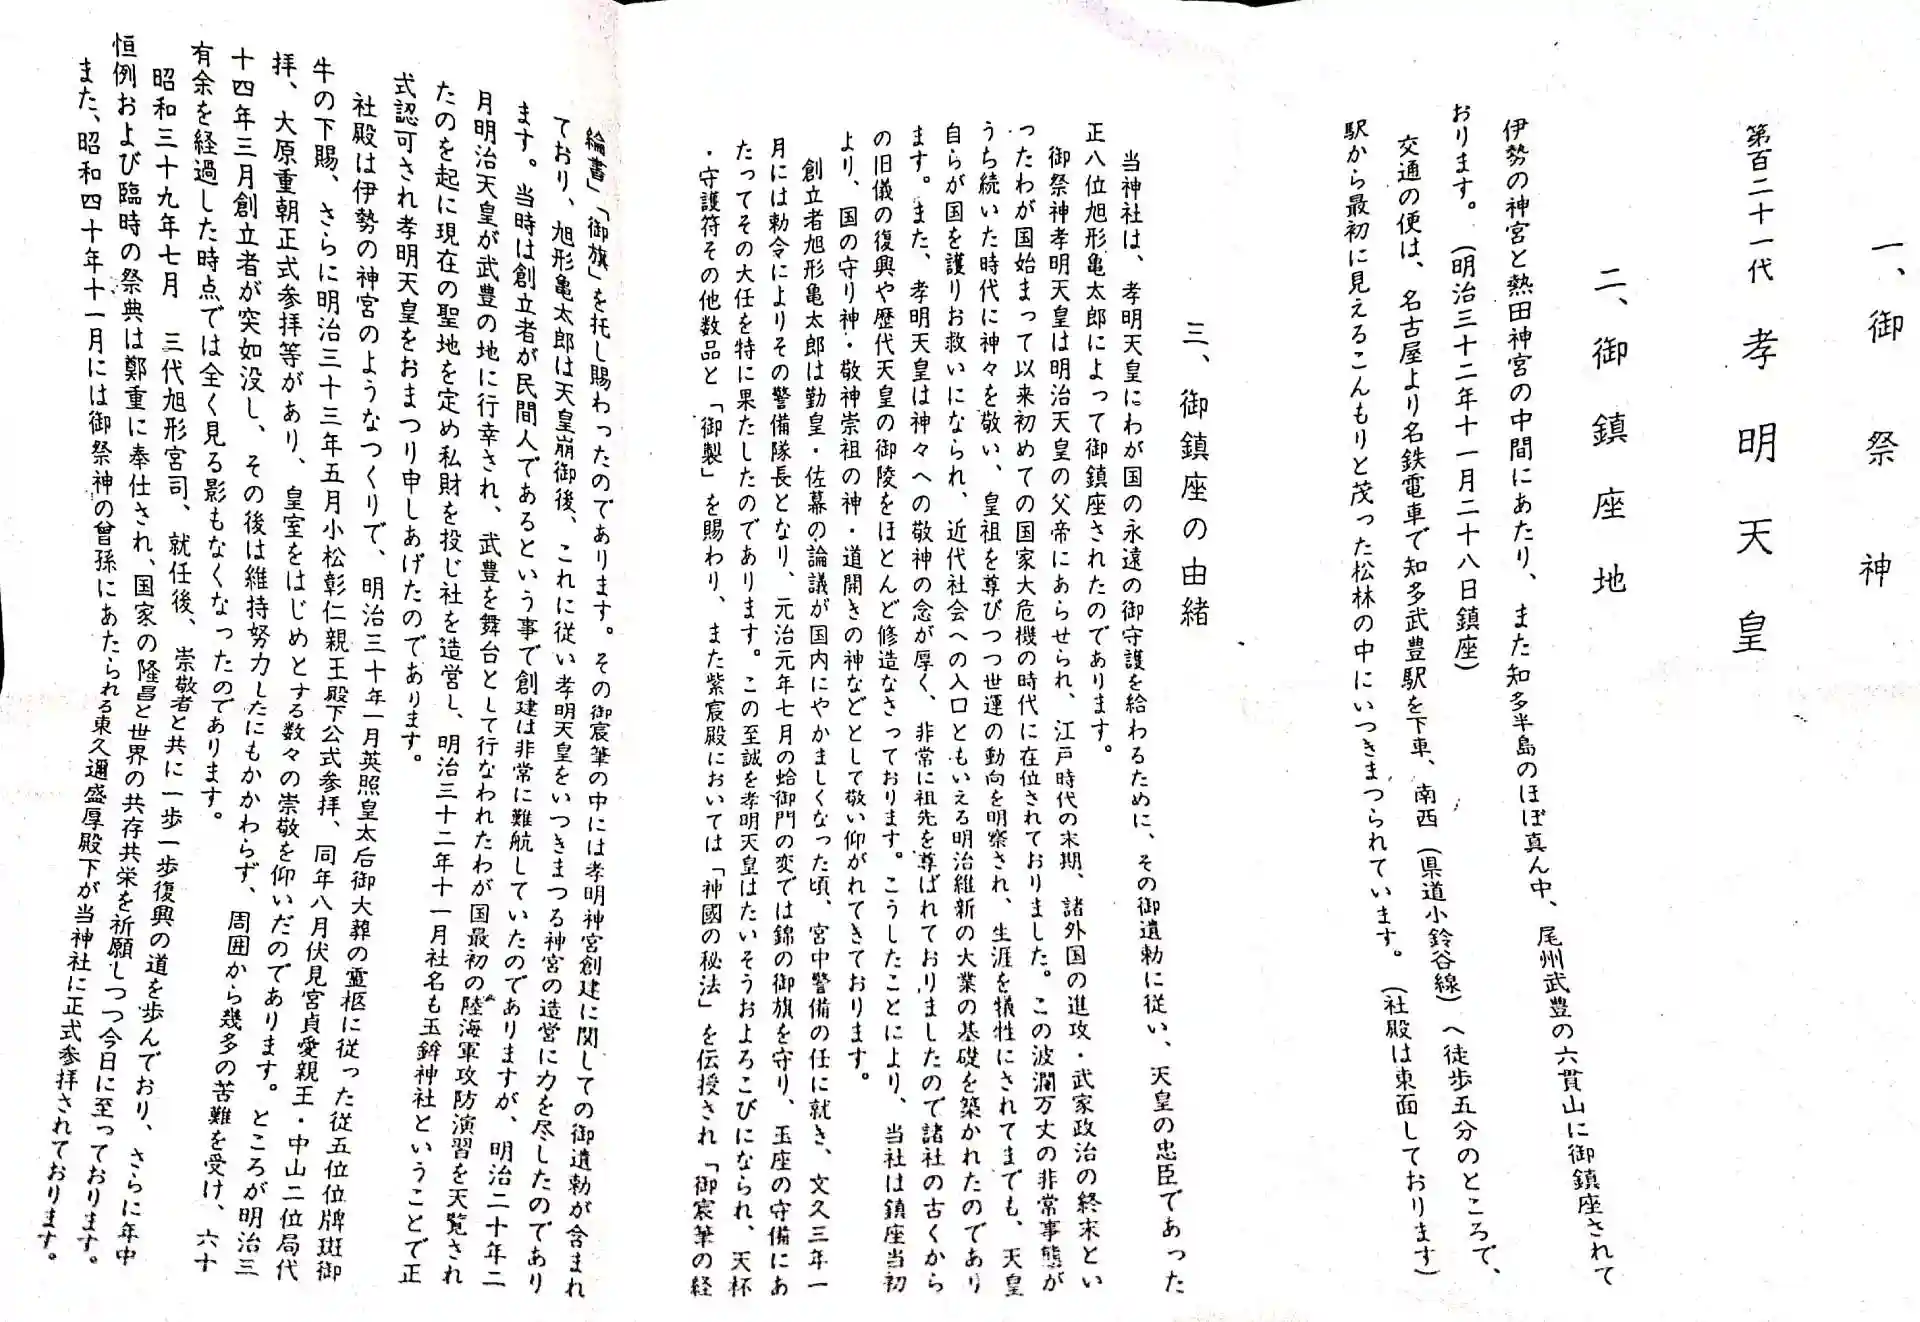 一、御祭神
第百二十一代　孝明天皇
二、御鎮座地
伊勢の神宮と熱田神宮の中間にあたり、また知多半島のほぼ真ん中、尾州武豊の六貫山に御鎮座されて
おります。（明治三十二年十一月二十八日鎮座）
交通の便は、名古屋より名鉄電車で知多武豊駅を下車、南西（県道小鈴谷線）へ徒歩五分のところで、
駅から最初に見えるこんもりと茂った松林の中にいつきまつられています。（社殿は東面しております）
三、御鎮座の由緒
当神社は、孝明天皇にわが国の永遠の御守護を給わるために、その御遺勅に従い、天皇の忠臣であった
正八位旭形亀太郎によって御鎮座されたのであります。
御祭神孝明天皇は明治天皇の父帝にあらせられ、江戸時代の末期、諸外国の進攻・武家政治の終末とい
ったわが国始まって以来初めての国家大危機の時代に在位されておりました。この波瀾万丈の非常事態が
うち続いた時代に神々を敬い、皇祖を尊びつつ世運の動向を明察され、生涯を犠牲にされてまでも、天皇
自らが国を護りお救いになられ、近代社会への入口ともいえる明治維新の大業の基礎を築かれたのであり
ます。また、孝明天皇は神々への敬神の念が厚く、非常に祖先を尊ばれておりましたので諸社の古くから
の旧儀の復興や歴代天皇の御陵をほとんど修造なさっております。こうしたことにより、当社は鎮座当初
より、国の守り神・敬神崇祖の神・道開きの神などとして敬い仰がれてきております。
創立者旭形亀太郎は勤皇・佐幕の論議が国内にやかましくなった頃、宮中警備の任に就き、文久三年一
月には勅令によりその警備隊長となり、元治元年七月の蛤御門の変では錦の御旗を守り、玉座の守備にあ
たってその大任を特に果たしたのであります。この至誠を孝明天皇はたいそうおよろこびになられ、天杯
・守護符その他数品と「御製」を賜わり、また紫宸殿においては「神國の秘法」を伝授され「御宸筆の経
綸書」「御旗」を托し賜わったのであります。その御宸筆の中には孝明神宮創建に関しての御遺勅が含まれ
ており、旭形亀太郎は天皇崩御後、これに従い孝明天皇をいつきまつる神宮の造営に力を尽したのであり
ます。当時は創立者が民間人であるという事で創建は非常に難航していたのでありますが、明治二十年二
月明治天皇が武豊の地に行幸され、武豊を舞台として行なわれたわが国最初の陸海軍攻防演習を天覧され
たのを起に現在の聖地を定め私財を投じ社を造営し、明治三十二年十一月社名も玉鉾神社ということで正
式認可され孝明天皇をおまつり申しあげたのであります。
社殿は伊勢の神宮のようなつくりで、明治三十年一月英照皇太后御大葬の霊柩に従った従五位位牌斑御
牛の下賜、さらに明治三十三年五月小松彰仁親王殿下公式参拝、同年八月伏見宮貞愛親王・中山二位局代
拝、大原重朝正式参拝等があり、皇室をはじめとする数々の崇敬を仰いだのであります。ところが明治三
十四年三月創立者が突如没し、その後は維持努力したにもかかわらず、周囲から幾多の苦難を受け、六十
有余を経過した時点では全く見る影もなくなったのであります。
昭和三十九年七月　三代旭形宮司、就任後、崇敬者と共に一歩一歩復興の道を歩んでおり、さらに年中
恒例および臨時の祭典は鄭重に奉仕され、国家の隆昌と世界の共存共栄を祈願しつつ今日に至っております。
また、昭和四十年十一月には御祭神の曾孫にあたられる東久邇盛厚殿下が当神社に正式参拝されております。